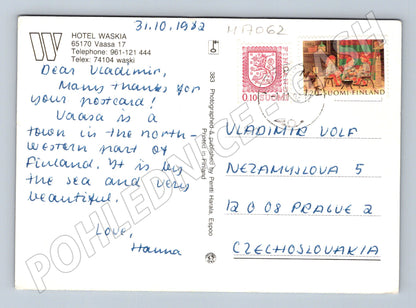 31.10.1982
MA7062
W HOTEL WASKIA
65170 Vaasa 17
Telephone: 961-121 444
Telex: 74104 waski
Dear Vladimir,
Many thanks for
your postcard!
Vaasa is a
town in the north-
western part of
Finland. It is by
the sea and very
beautiful.
Love,
Hanna
383 Photographed & published by Pentti Harala, Espoo
Printed in Finland
0,10 SUOMI
SUOMI-FINLAND
VLADIMIR VOLF
NEZAMYSLOVA 5
12008 PRAGUE 2
CZECHOSLOVAKIA
POHLEDNICE